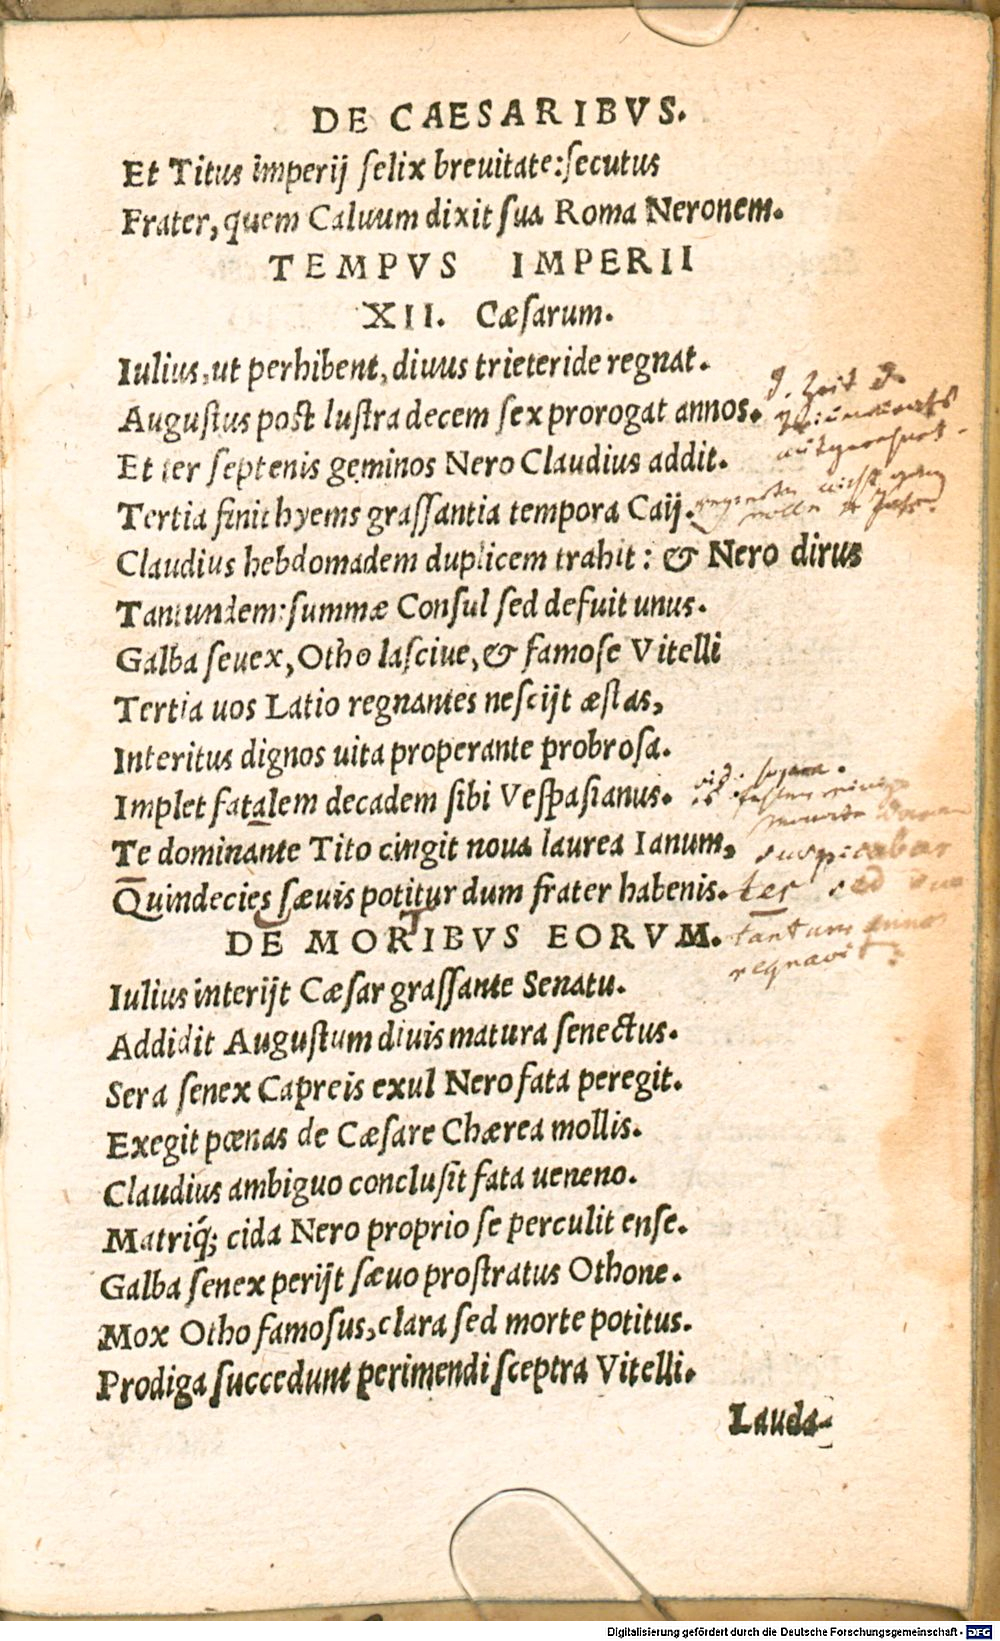 DE CAESARIBVS.
Et Titus imperij felix breuitate:secutus
Frater, quem Caluum dixit sua Roma Neronem.
TEMPVS IMPERII
XII. Cæsarum.
Iulius, ut perhibent, diuus trieteride regnat.
Augustus post lustra decem sex prorogat annos.
Et ter septenis geminos Nero Claudius addit.
Tertia finit hyems grassantia tempora Caij.
Claudius hebdomadem duplicem trahit: & Nero dirus
Tantundem: summæ Consul sed defuit unus.
Galba senex, Otho lasciue, & famose Vitelli
Tertia uos Latio regnantes nescijt æstas,
Interitus dignos uita properante probrosa.
Implet fatalem decadem sibi Vespasianus.
Te dominante Tito cingit noua laurea Ianum,
Quindecies sæuis potitur dum frater habenis.
DE MORTIBVS EORVM.
Iulius interijt Cæsar grassante Senatu.
Addidit Augustum diuis matura senectus.
Sera senex Capreis exul Nero fata peregit.
Exegit pœnas de Cæsare Chærea mollis.
Claudius ambiguo conclusit fata ueneno.
Matriq́; cida Nero proprio se perculit ense.
Galba senex perijt sæuo prostratus Othone.
Mox Otho famosus, clara sed morte potitus.
Prodiga succedunt perimendi sceptra Vitelli.
Lauda-
d. Zeit d.
vid. supra.
suspicabar
ter sed
tantum anno
regnavit
Digitalisierung gefördert durch die Deutsche Forschungsgemeinschaft - DFG